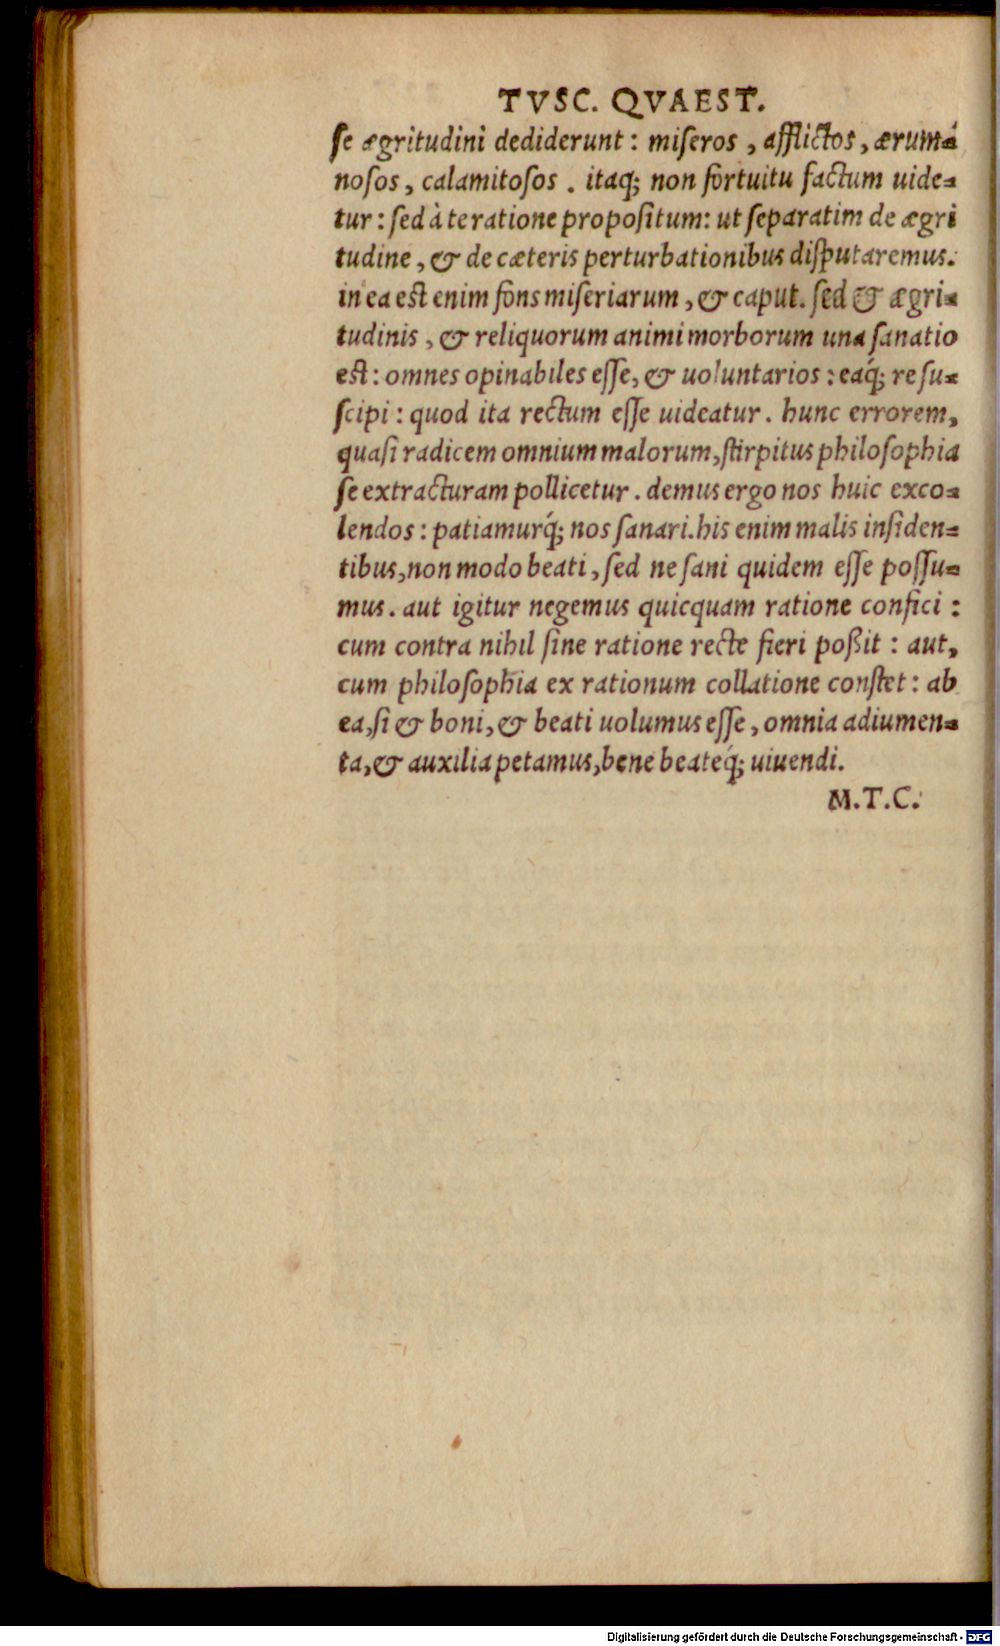 TVSC. QVAEST.
se ægritudini dediderunt: miseros, afflictos, ærum-
nosos, calamitosos. itaq; non fortuitu factum uide-
tur: sed à te ratione propositum: ut separatim de ægri
tudine, & de cæteris perturbationibus disputaremus.
in ea est enim fons miseriarum, & caput. sed & ægri-
tudinis, & reliquorum animi morborum una sanatio
est: omnes opinabiles esse, & uoluntarios: eaq́; re su-
scipi: quod ita rectum esse uideatur. hunc errorem,
quasi radicem omnium malorum, stirpitus philosophia
se extracturam pollicetur. demus ergo nos huic exco-
lendos: patiamurq́; nos sanari. his enim malis insiden-
tibus, non modo beati, sed ne sani quidem esse possu-
mus. aut igitur negemus quicquam ratione confici:
cum contra nihil sine ratione recte fieri poßit: aut,
cum philosophia ex rationum collatione constet: ab
ea, si & boni, & beati uolumus esse, omnia adiumen-
ta, & auxilia petamus, bene beateq́; uiuendi.
M.T.C.
Digitalisierung gefördert durch die Deutsche Forschungsgemeinschaft - DFG